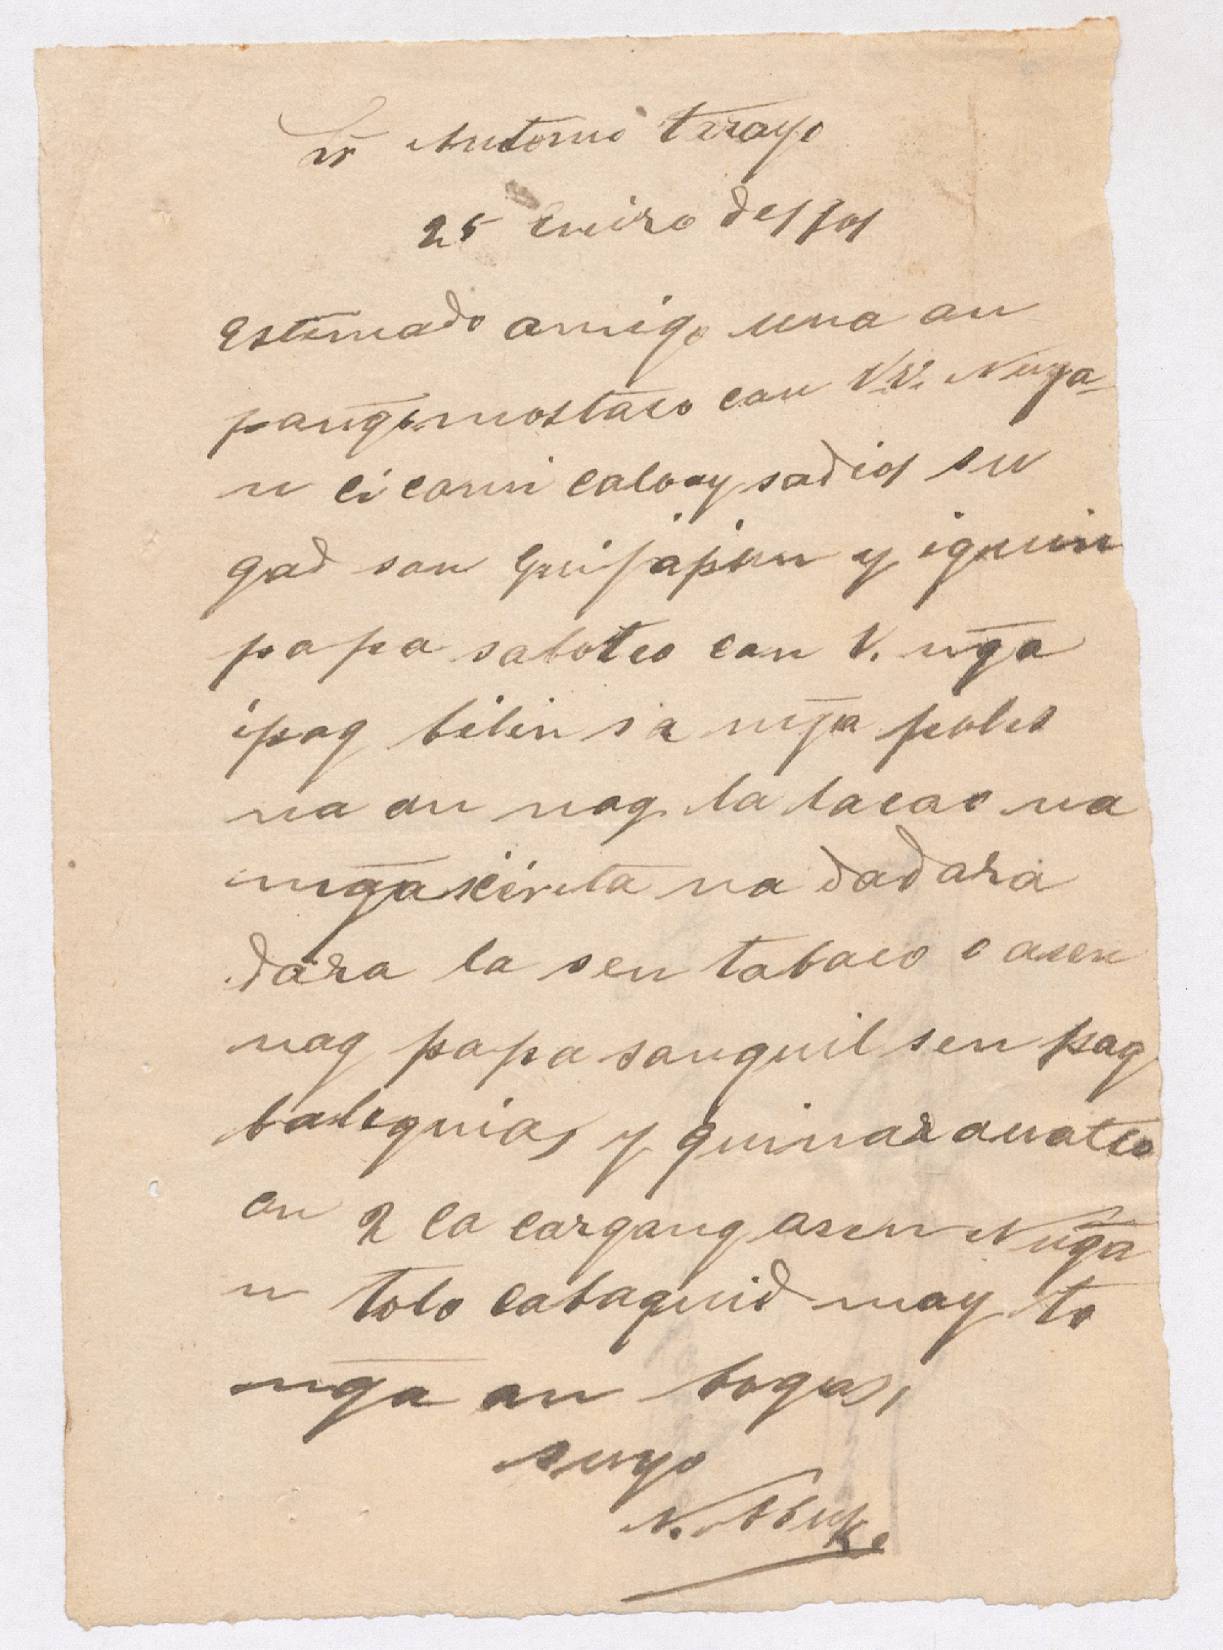 Sr Antonio Terayo
25 Eneiro de 1901
Estemado amigo una an
pangomostaco can VV. Nuga
n ci cami caloay sa dios su
gad san Guijapun y iguin
papa sabotco can V. nga
ipag bilin sa mga poles
na an nag la lacao na
mga na dad ara
dara la sen tabaco o asen
nag papa sanquil sen pag
baleguias y quinaranatco
an 2 ca cargang asen Nuga
n tolo cabaquid may to
nga an bogas,
suyo